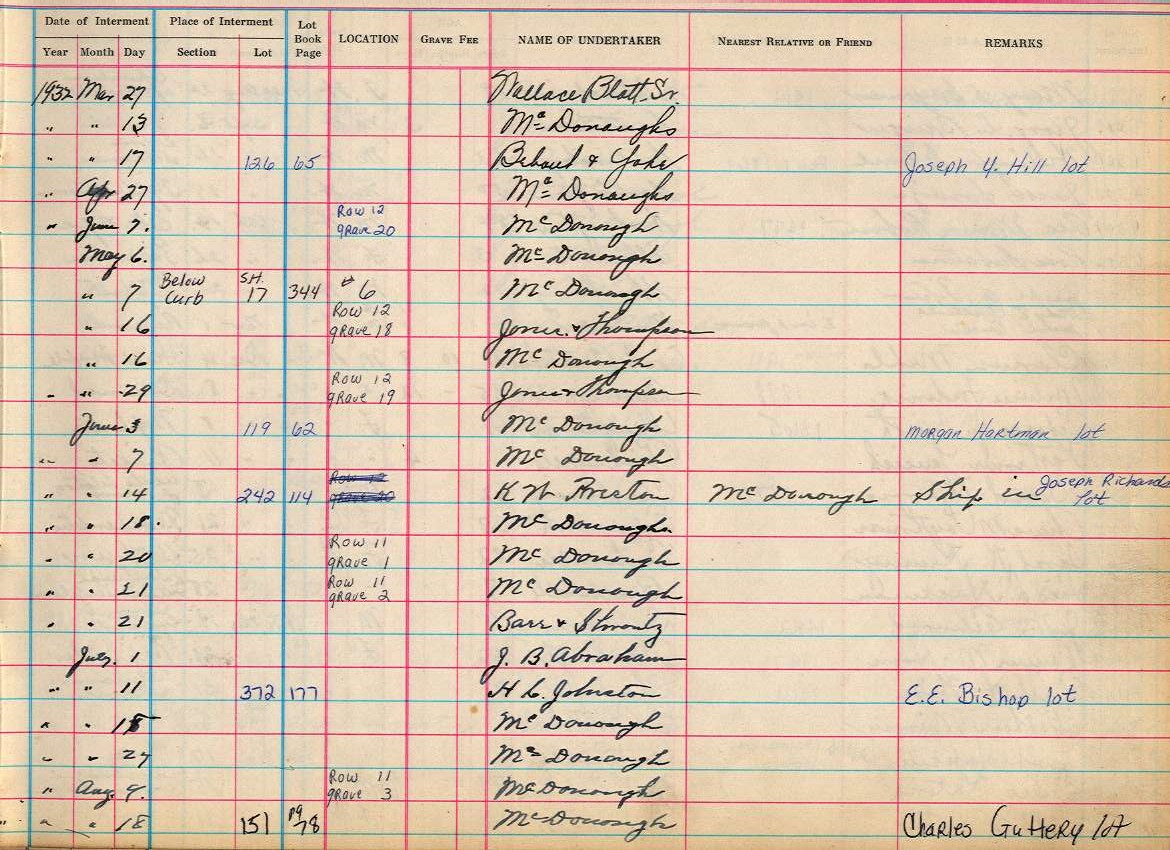 Date of Interment Place of Interment Lot Book Page LOCATION GRAVE FEE NAME OF UNDERTAKER NEAREST RELATIVE OR FRIEND REMARKS
Year Month Day Section Lot
1932 Mar 27 Wallace Blatt Sr.
" " 13 Mc Donaughs
" " 17 126 65 & Joseph Y. Hill lot
" Apr 27 Mc Donaughs
" June 7. Row 12 grave 20 Mc Donough
May 6. Mc Donough
" 7 Below Curb S.H. 17 344 # 6 Mc Donough
" 16 Row 12 grave 18 Jones & Thompson
" 16 Mc Donough
" " 29 Row 12 grave 19 Jones & Thompson
June 3 119 62 Mc Donough Morgan Hartman lot
" " 7 Mc Donough
" " 14 242 114 Row 12 grave 20 K W Preston Mc Donough Ship in Joseph Richards lot
" " 18. Mc Donough
" " 20 Row 11 grave 1 Mc Donough
" " 21 Row 11 grave 2 Mc Donough
" " 21 Barr &
July. 1 J. B. Abraham
" " 11 372 177 H L. Johnston E.E. Bishop lot
" " 15 Mc Donough
" " 27 Mc Donough
" Aug. 9. Row 11 grave 3 McDonough
" " " 18 151 pg 78 McDonough Charles Guttery lot